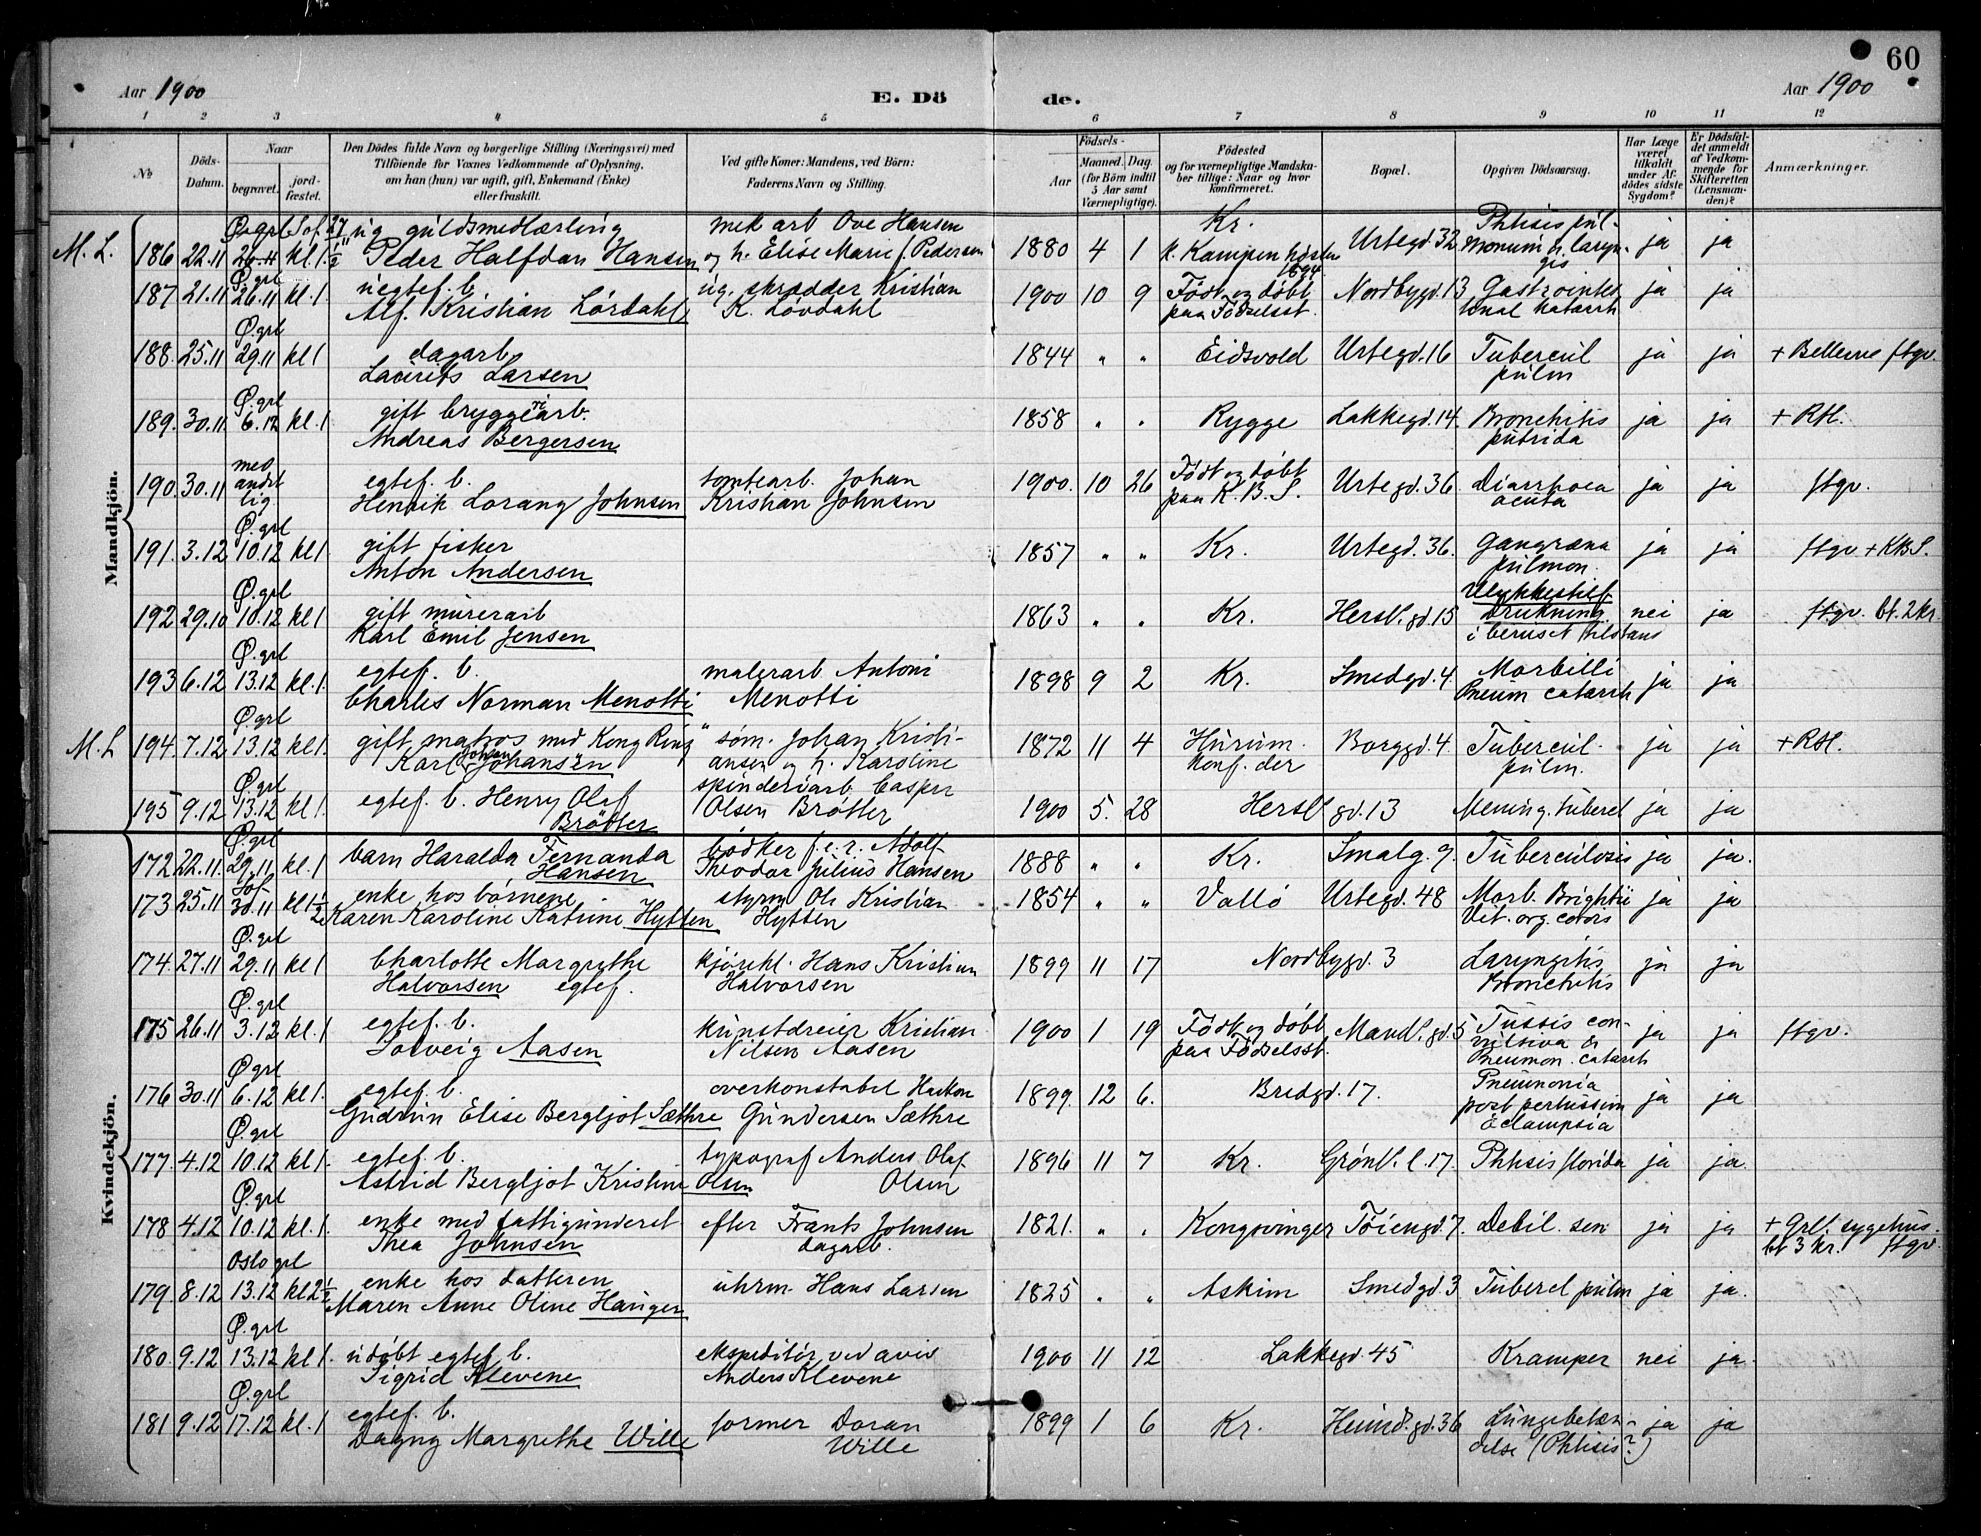 60
Aar 1900
E. Dö
de.
Aar 1900
1 2 3 4 5 6 7 8 9 10 11 12
No
Döds-Datum.
Naar
begravet.
jordfæstet.
Den Dödes fulde Navn og borgerlige Stilling (Næringsvei) med
Tilföiende for Voxnes Vedkommende af Oplysning,
om han (hun) var ugift, gift, Enkemand (Enke)
eller fraskilt.
Ved gifte Koner: Mandens, ved Börn:
Faderens Navn og Stilling.
Födsels-
Aar
Maaned. Dag.
(for Börn indtil
5 Aar samt
Værnepligtige).
Födested
og for værnepligtige Mandska-
ber tillige: Naar og hvor
konfirmeret.
Bopæl.
Opgiven Dödsaarsag.
Har Læge
været
tilkaldt
under Af-
dödes sidste
Sygdom?
Er Dödsfal-
det anmeldt
af Vedkom-
mende for
Skifteretten
(Lensman-
den)?
Anmærkninger.
Mandkjön.
M. L. 186 22.11 Ø. grl 26.11 Sof. 27/11 kl. 1 1/2 ug guldsmedlærling mek arb Ove Hansen Kr. Phthisis pul-
Peder Halfdan Hansen og h. Elise Marie f. Pedersen 1880 4 1 k. Kampen høsten 1894 Urtegd. 32 monum & laryn-gis ja ja
187 21.11 Ø. grl 26.11 kl. 1 uegtef. b. ug. skrædder Kristian 1900 10 9 Født og døbt Nordbygd. 13 Gastrointes ja ja
Alf. Kristian Lövdahl K. Lövdahl paa Fødselsst. tinal katarrh
188. 25.11 Ø. grl 29.11 kl 1 dagarb. 1844 " " Eidsvold Urtegd. 16 Tubercul ja ja + Bellevue ftgv.
Laurits Larsen pulm
189. 30.11 Ø. grl 6.12 kl. 1 gift bryggeriarb. 1858 " " Rygge Lakkegd. 14. Bronchitis ja ja + RH.
Andreas Bergersen putrida
190. 30.11 med andet lig egtef. b. tomtearb. Johan 1900. 10 26 Født og døbt Urtegd. 36. Diarrhoea ja ja ftgv.
Henrik Lorang Johnsen Kristian Johnsen paa K. B. S. acuta
191. 3.12 Ø. grl 10.12 kl 1 gift fisker 1857 " " Kr. Urtegd. 36. Gangræna ja ja ftgv + KBS.
Anton Andersen pulmon.
192 29.10 Ø. grl 10.12 kl 1 gift murerarb 1863 " " Kr. Hersl. gd. 15 Ulykkestilf. drukning nei ja ftgv. bt. 2 kr.
Karl Emil Jensen i beruset tilstand
193 6.12 Ø. grl 13.12 kl. 1. egtef. b. malerarb Antoni 1898 9 2 Kr. Smedgd. 4. Morbilli ja ja
Charles Norman Menotti Menotti Pneum catarrh
M. L 194. 7.12 Ø. grl 13.12 kl 1. gift matros med "Kong Ring" søm. Johan Kristi- 1872 11 4 Hurum. Borggd. 4 Tubercul. ja ja + RH.
Karl Johan Johansen ansen og h. Karoline konf. der pulm.
195 9.12 Ø. grl 13.12 kl 1. egtef. b. Henry Olaf spinderiarb Casper 1900 5. 28 Hersl gd. 13 Mening. tubercl ja ja
Bröttér Olsen Bröttér
Kvindekjön.
172 22.11. Ø. grl 29.11 kl. 1 barn Haralda Fernanda bödker f.e.r. Adolf 1888 " " Kr. Smalg. 9. Tuberculosis ja ja.
Hansen Theodor Julius Hansen
173 25.11 Sof 30.11 kl 1 1/2 enke hos börnene styrm Ole Kristian 1854 " " Vallö Urtegd. 48 Morb. Brightii ja ja
Karen Karoline Katrine Hytten Hytten Vit. org. cordis
174. 27.11 Ø. grl 29.11 kl 1 Charlotte Margrethe kjörekl. Hans Kristian 1899 11 17 Nordbygd. 3 Laryngitis ja ja
Halvorsen egtef. Halvorsen Bronchitis
175 26.11 Ø. grl 3.12 kl. 1 egtef. b. kunstdreier Kristian 1900 1 19 Født og døbt Mandl. gd. 5 Tussis con- ja ja ftgv.
Solveig Aasen Nilsen Aasen paa Fødselsst. vulsiva & Pneumon. catarrh
176 30.11 Ø. grl 6.12 kl 1. egtef. b. overkonstabel Haakon 1899. 12 6. Bredgd. 17. Pneumonia ja ja
Gudrun Elise Bergljot Sæthre Gundersen Sæthre post pertussim Eclampsia
177. 4.12 Ø. grl 10.12 kl 1. egtef. b. typograf Anders Olaf 1896 11 7 Kr. Grönl. l. 17. Phthisis florida ja ja.
Astrid Bergljot Kristine Olsen Olsen
178 4.12 Ø. grl 10.12 kl. 1. enke med fattigunderst efter Frants Johnsen 1821. " " Kongsvinger Töiengd. 7. Debil. sen ja ja + Grl. sygehus.
Thea Johnsen dagarb. bt 3 kr. ftgv.
179. 8.12 Oslo grl 13.12 kl 2 1/2 enke hos datteren uhrm. Hans Larsen 1825 " " Askim Smedgd. 3 Tubercl pulm ja ja.
Maren Anne Oline Haugen
180. 9.12 Ø. grl 13.12 kl 1. udøbt egtef b. ekspeditör ved avis 1900 11 12 Lakkegd. 45 Kramper nei ja.
Sigrid Klevene Anders Klevene
181 9.12 Ø. grl 17.12 kl. 1 egtef. b. former Doran 1899 1 6 Kr. Heimd. gd. 36 Lungebetæn- ja ja
Dagny Margrethe Wille Wille delse (Phthisis?)